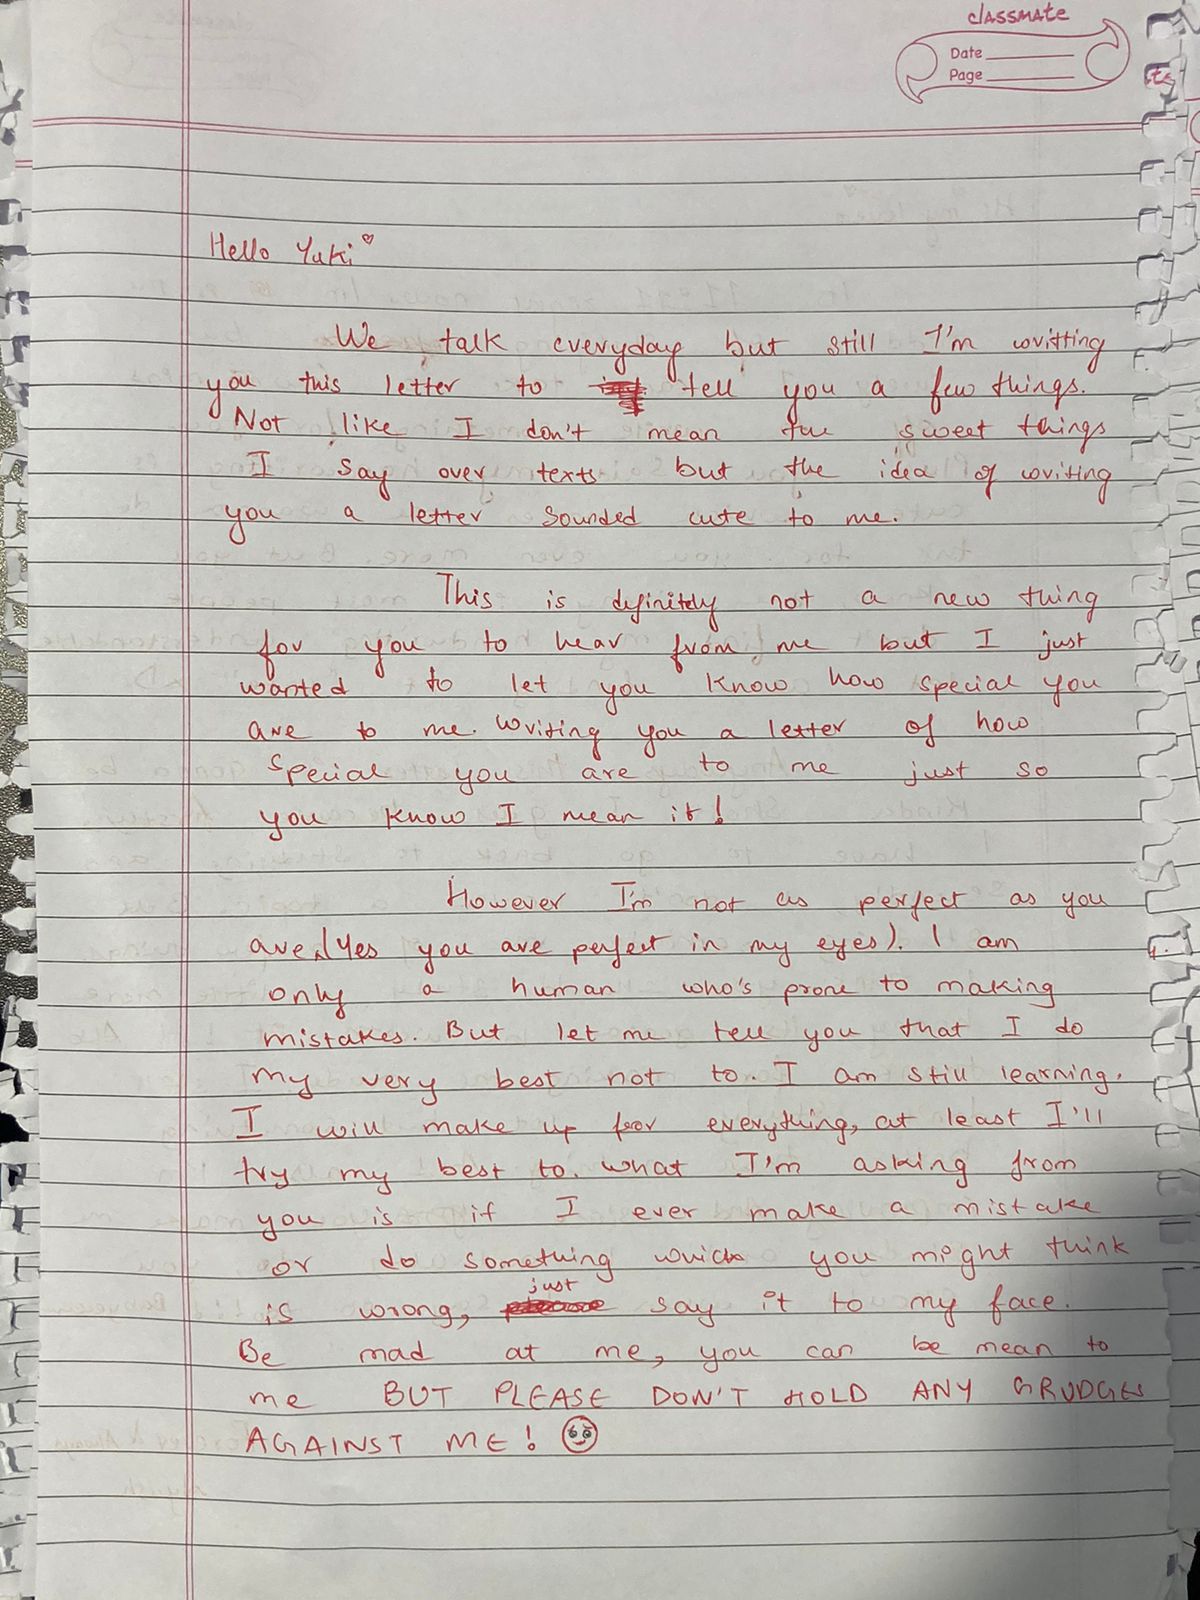 classmate
Date
Page
Hello Yuki♡
We talk everyday but still I'm writting
you this letter to tell you a few things.
Not like I don't mean the sweet things
I say over texts but the idea of writing
you a letter sounded cute to me.
This is definitely not a new thing
for you to hear from me but I just
wanted to let you know how special you
are to me. Writing you a letter of how
special you are to me just so
you know I mean it!
However I'm not as perfect as you
are (Yes you are perfect in my eyes). I am
only a human who's prone to making
mistakes. But let me tell you that I do
my very best not to. I am still learning.
I will make up for everything, at least I'll
try my best to. what I'm asking from
you is if I ever make a mistake
or do something which you might think
is wrong, just say it to my face.
Be mad at me, you can be mean to
me BUT PLEASE DON'T HOLD ANY GRUDGES
AGAINST ME!